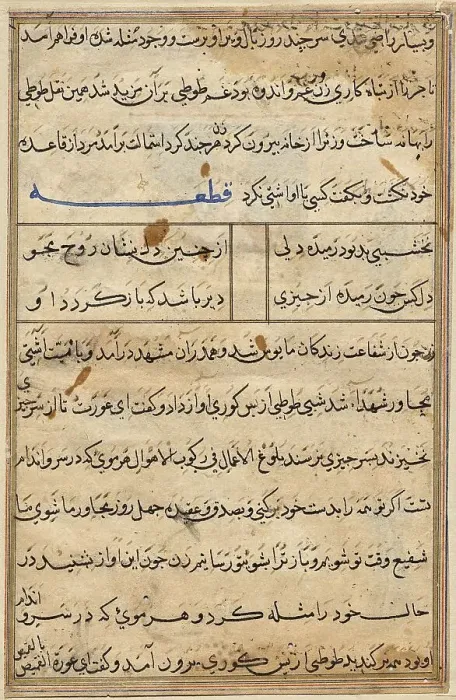 و بسیار راضی شدی سر چند روز بال و پر او برست و وجود مثله شده او فراهم آمد
تاجر را از تباه کاری زن غم و اندوه بود غم طوطی بر آن مزید شد همین نقل طوطی
را بهانه ساخت و زن را از خانه بیرون کرد زن هر چند کرد استمالت برآمد مرد از قاعده
خود نگشت و بگفت کسی با او آشتی نکرد قطعه
نخشبی بد بود رمیده دلی
از چنین دل نشان روح مجو
دل کس چون رمیده از چیزی
دیر باشد که باز گردد او
زن چون از شفاعت زندگان مایوس شد و همدران مشهد درآمد و با نیت آشتی
مجاور شهدا شد شبی طوطی از پس گوری آواز داد و گفت ای عورت تا از سر چیزی
نخیزند بسر چیزی نرسند بلوغ الآمال فی رکوب الاهوال هر موی که در سر و اندام
تست اگر تو همه را بدست خود برکنی و بصدق و عقیده چهل روز مجاور ما شوی ما
شفیع وقت تو شویم و باز ترا بشوی تو رسانیم زن چون این آواز شنید در
حال خود را مثله کرد و هر موی که در سر و اندام
او بود همه برکندید طوطی از پس گوری بیرون آمد و گفت ای عورة